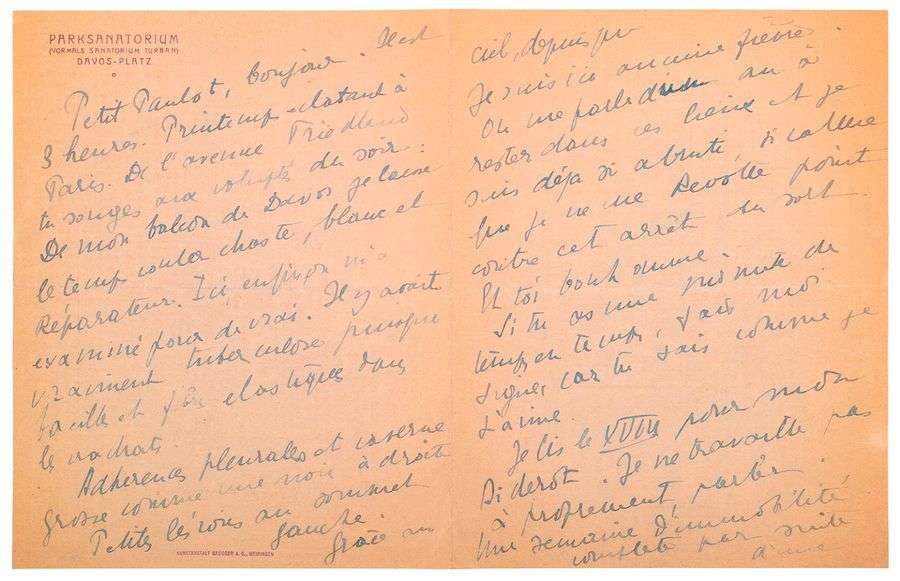 PARKSANATORIUM
(VORMALS SANATORIUM TURBAN)
DAVOS-PLATZ
Petit Paulot, bonjour. Il est
3 heures. Printemps éclatant à
Paris. De l'avenue Friedland
tu songes aux voluptés du soir.
De mon balcon de Davos je laisse
le temps couler chaste, blanc et
Réparateur. Ici, enfin, on m'a
examiné pour de vrai. Il y avait
vraiment tuberculose puisque
bacilles et fibres élastiques dans
les crachats.
Adhérences pleurales et caverne
grosse comme une noix à droite
Petites lésions au sommet
gauche.
Grâce au
KUNSTANSTALT BRÜGGER A. G., MEIRINGEN
ciel, depuis que
Je suis ici aucune fièvre.
On me parle d'un an à
rester dans ces lieux et je
suis déjà si abruti, si calme
que je ne me Révolte point
contre cet arrêt du sort.
Et toi bonhomme.
Si tu as une minute de
temps en temps, fais moi
signe, car tu sais comme je
t'aime.
Je lis le XVIII pour mon
Diderot. Je ne travaille pas
à proprement parler.
Une semaine d'immobilité
complète par suite
d'une